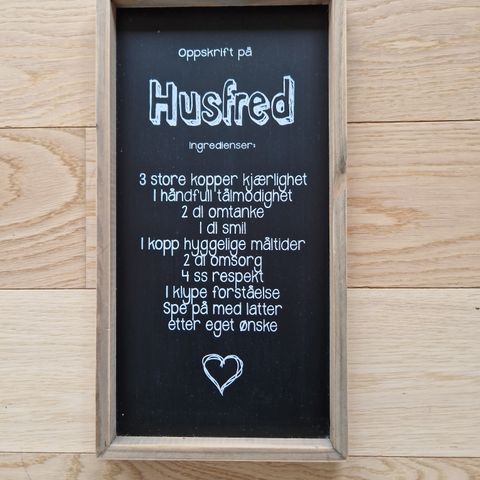 Oppskrift på
Husfred
Ingredienser:
3 store kopper kjærlighet
1 håndfull tålmodighet
2 dl omtanke
1 dl smil
1 kopp hyggelige måltider
2 dl omsorg
4 ss respekt
1 klype forståelse
Spe på med latter
etter eget ønske